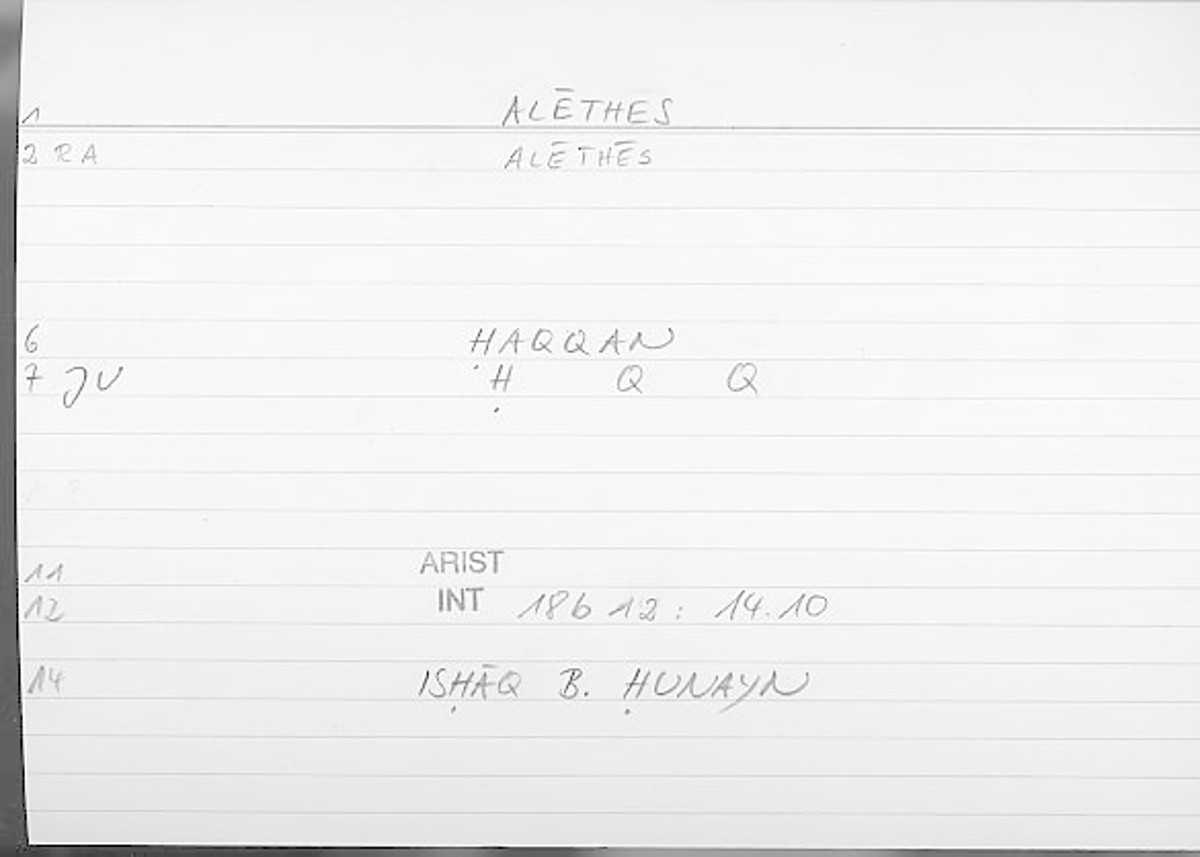 1 ALĒTHES
2 RA ALĒTHĒS
6 ḤAQQAN
7 JV Ḥ Q Q
11 ARIST
12 INT 18b 12: 14.10
14 ISḤĀQ B. ḤUNAYN